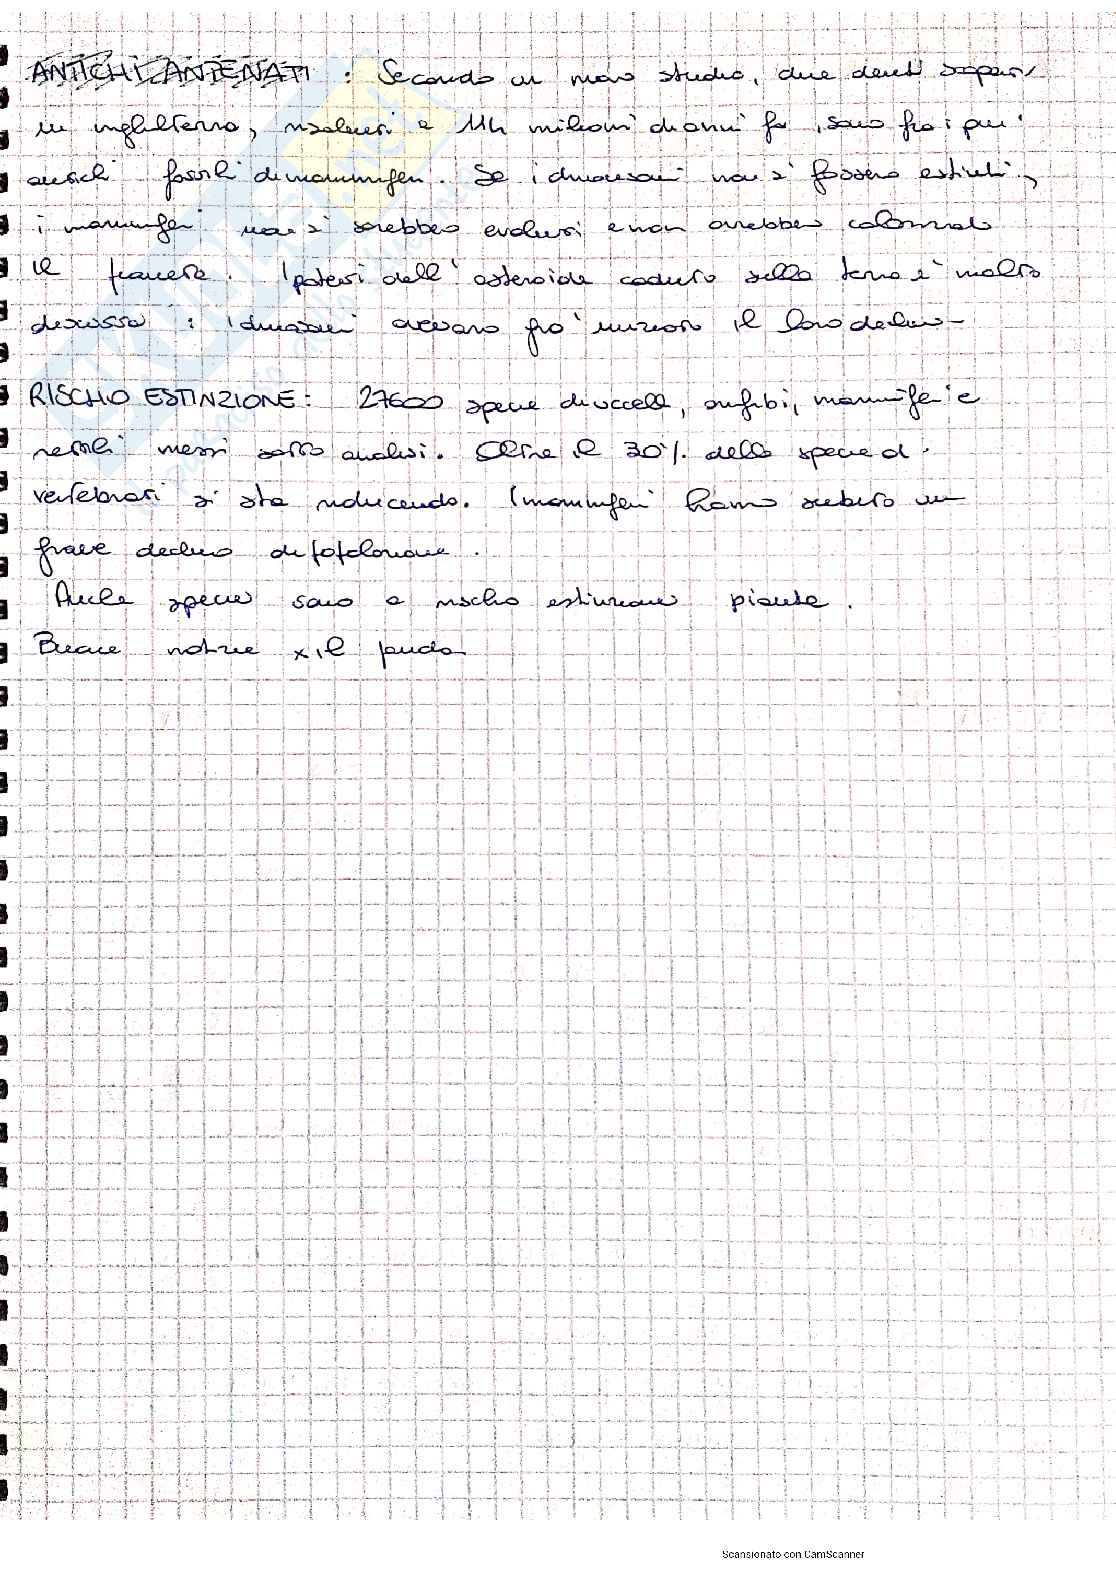 ANTICHI ANTENATI : Secondo un nuovo studio, due denti scoperti
in inghilterra, risalenti a 114 milioni di anni fa, sono fra i più
antichi fossili di mammiferi. Se i dinosauri non si fossero estinti,
i mammiferi non si sarebbero evoluti e non avrebbero colonizzato
il pianeta. Ipotesi dell'asteroide caduto sulla terra è molto
discussa : i dinosauri avevano già iniziato il loro declino
RISCHIO ESTINZIONE : 27600 specie di uccelli, anfibi, mammiferi e
rettili messi sotto analisi. Oltre il 30% delle specie di
vertebrati si sta riducendo. I mammiferi hanno subito un
grave declino di popolazione.
Anche specie sono a rischio estinzione piante.
Buone notizie x il panda
Scansionato con CamScanner